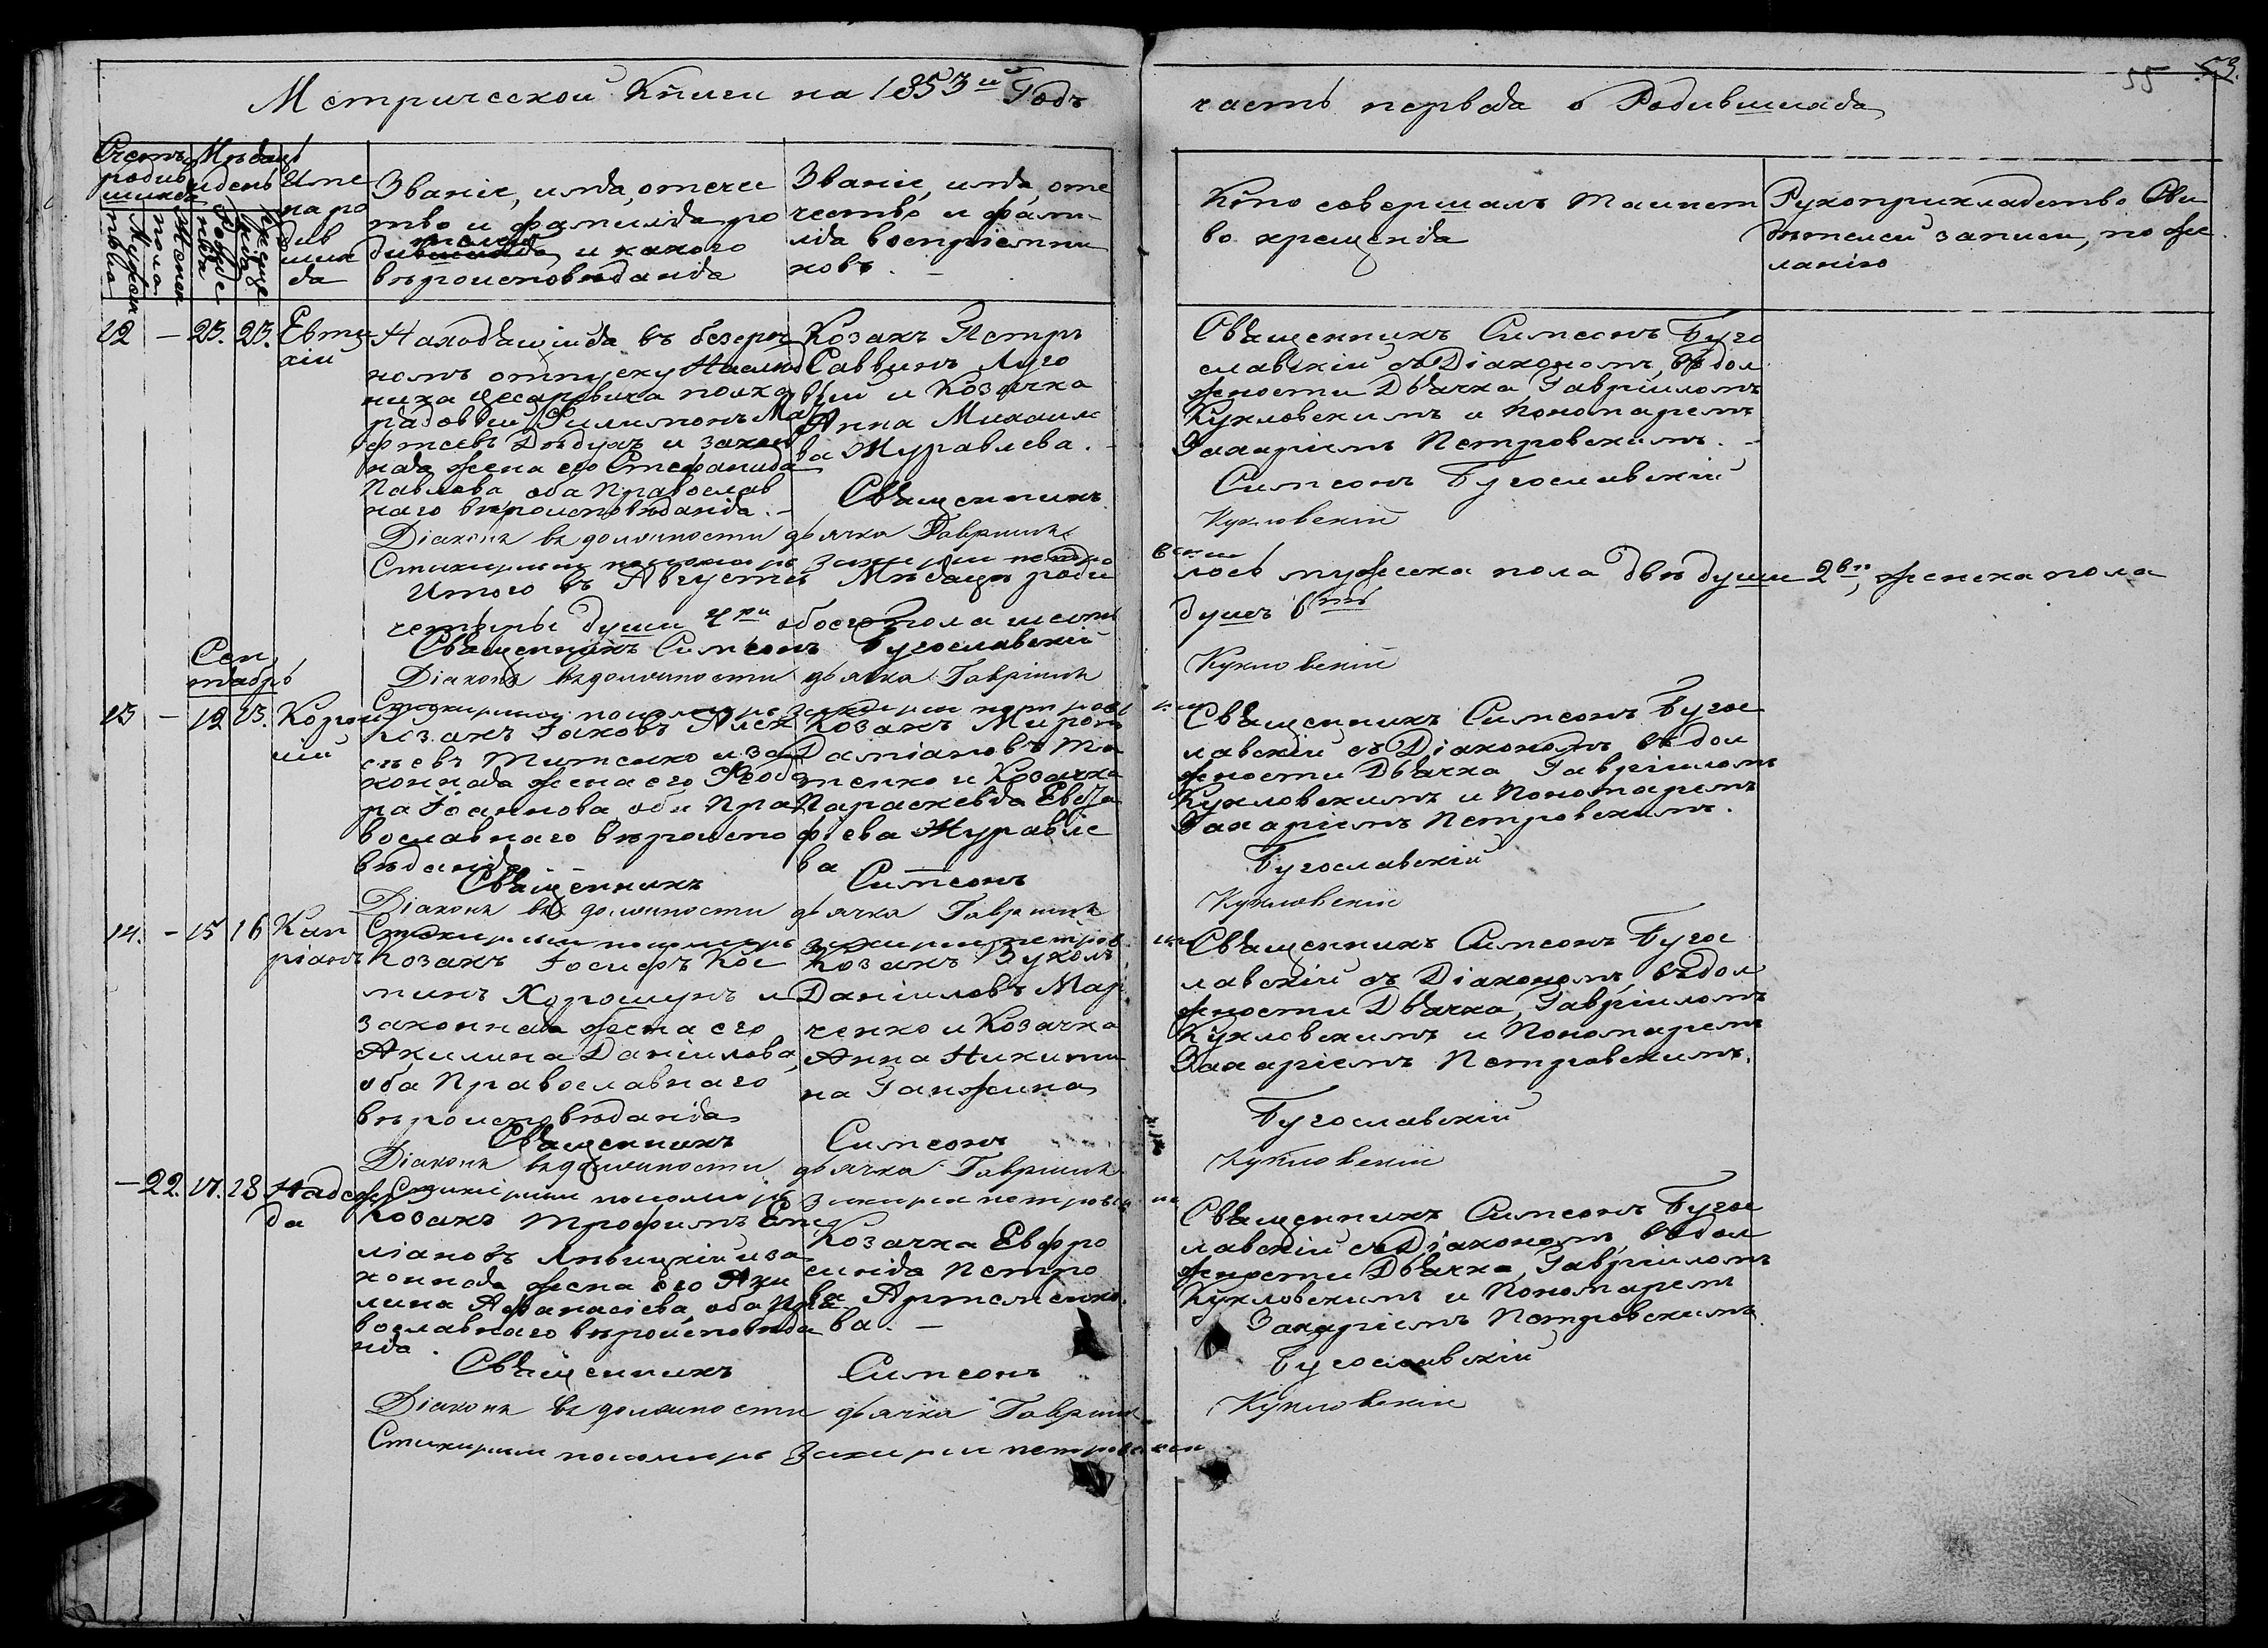 Метрической Книги на 1853й Годъ
часть первая о Родившихся
55
53.
Счетъ родившихся
Мужеска пола
Женска пола
Мѣсяцъ и день
Рожденія
Крещенія
Имена родившихся
Званіе, имя, отечество и фамилія родителей и какого вѣроисповѣданія
Званіе, имя, отечество и фамилія воспріемниковъ. –
Кто совершалъ таинство крещенія
Рукоприкладство Свидѣтелей записи, по желанію
12 – 23. 23.
Евти
хій
Находящійся въ безсроч
номъ отпуску Наслѣд
ника Цесаревича полка
рядовый Филимонъ Мат
фѣевъ Дѣдухъ и закон
ная жена его Стефанида
Павлова оба Православ
наго вѣроисповѣданія. –
Козакъ Петръ
Саввинъ Луго
вый и Козачка
Анна Михайло
ва Журавлева. –
Священникъ Симеонъ Буго
славскій съ Діакономъ, въ дол
жности Дьячка, Гавріиломъ
Кукловскимъ и Пономаремъ
Захаріемъ Петровскимъ. –
Священникъ Симеонъ Бугославскій
Діаконъ въ должности дьячка Гавріилъ Кукловскій
Стихирный пономарь Захарій Петровскій
Итого въ Августѣ Мѣсяцѣ роди
лось мужеска пола двѣ души 2ве, женска пола
четыре души 4ри обоего пола шесть
душъ 6ть
Священникъ Симеонъ Бугославскій
Діаконъ въ должности дьячка Гавріилъ Кукловскій
Стихирный пономарь Захарій Петровскій
Сен
тябрь
13 – 12 13.
Корни
лій
Козакъ Іаковъ Алек
сѣевъ Титенко и за
конная жена его Ѳеодо
ра Іоаннова оба Пра
вославнаго вѣроиспо
вѣданія
Козакъ Миронъ
Даміановъ Ти
тенко и Козачка
Параскевія Евста
фіева Журавле
ва
Священникъ Симеонъ Бугос
лавскій съ Діакономъ, въ дол
жности Дьячка, Гавріиломъ
Кукловскимъ и Пономаремъ
Захаріемъ Петровскимъ.
Священникъ Симеонъ Бугославскій
Діаконъ въ должности дьячка Гавріилъ Кукловскій
Стихирный пономарь Захарій Петровскій
14. – 15 16
Кип
ріанъ
Козакъ Іосифъ Кос
минъ Хорошунъ и
законная жена его
Акилина Даніилова,
оба Православнаго
вѣроисповѣданія
Козакъ Вуколъ
Даніиловъ Мар
ченко и Козачка
Анна Никити
на Ганжина
Священникъ Симеонъ Бугос
лавскій съ Діакономъ, въ дол
жности Дьячка, Гавріиломъ
Кукловскимъ и Пономаремъ
Захаріемъ Петровскимъ.
Священникъ Симеонъ Бугославскій
Діаконъ въ должности дьячка Гавріилъ Кукловскій
Стихирный пономарь Захарій Петровскій
– 22. 17. 18
Надеж
да
Козакъ Трофимъ Еми
ліановъ Лѣвицкій и за
конная жена его Аки
лина Аѳанасіева, оба Пра
вославнаго вѣроисповѣда
нія.
Козачка Евфро
синія Петро
ва Артеменко
ва. –
Священникъ Симеонъ Бугос
лавскій съ Діакономъ, въ дол
жности Дьячка, Гавріиломъ
Кукловскимъ и Пономаремъ
Захаріемъ Петровскимъ
Священникъ Симеонъ Бугославскій
Діаконъ въ должности дьячка Гавріилъ Кукловскій
Стихирный пономарь Захарій Петровскій